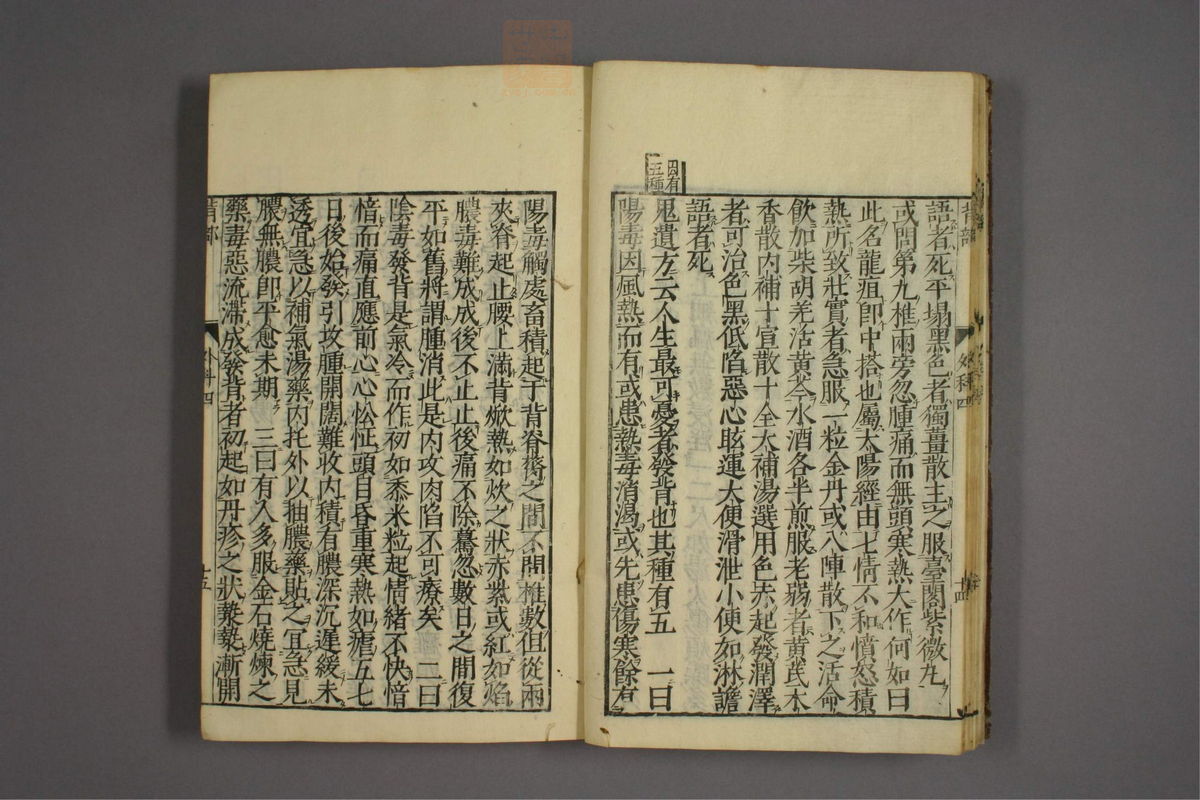 背部
外科四
十四
語者死平塌黑色者獨薑散主之服臺閣紫微丸
或問第九椎兩旁忽腫痛而無頭寒熱大作何如曰
此名龍疽卽中搭也屬太陽經由七情不和憤怒積
熱所致壯實者急服一粒金丹或八陣散下之活命
飲加柴胡羌活黃芩水酒各半煎服老弱者黃芪木
香散內補十宣散十全大補湯選用色赤起發潤澤
者可治色黑低陷惡心眩運大便滑泄小便如淋譫
語者死
因有
五種
鬼遺方云人生最可憂者發背也其種有五 一曰
陽毒因風熱而有或患熱毒消渴或先患傷寒餘有
陽毒觸處畜積起于背脊膂之間不問椎數但從兩
夾脊起止腰上滿背焮熱如炊之狀赤紫或紅如焰
膿毒難成成後不止止後痛不除驀忽數日之間復
平如舊將謂腫消此是內攻肉陷不可療矣 二曰
陰毒發背是氣冷而作初如黍米粒起情緒不快愔
愔而痛直應前心心忪怔頭目昏重寒熱如瘧五七
日後始發引攻腫開闊難收內積有膿深沉遲緩未
透宜急以補氣湯藥內托外以抽膿藥貼之宜急見
膿無膿卽平愈未期 三曰有人多服金石燒煉之
藥毒惡流滯成發背者初起如丹疹之狀漐漐漸開
背部
外科四
十五